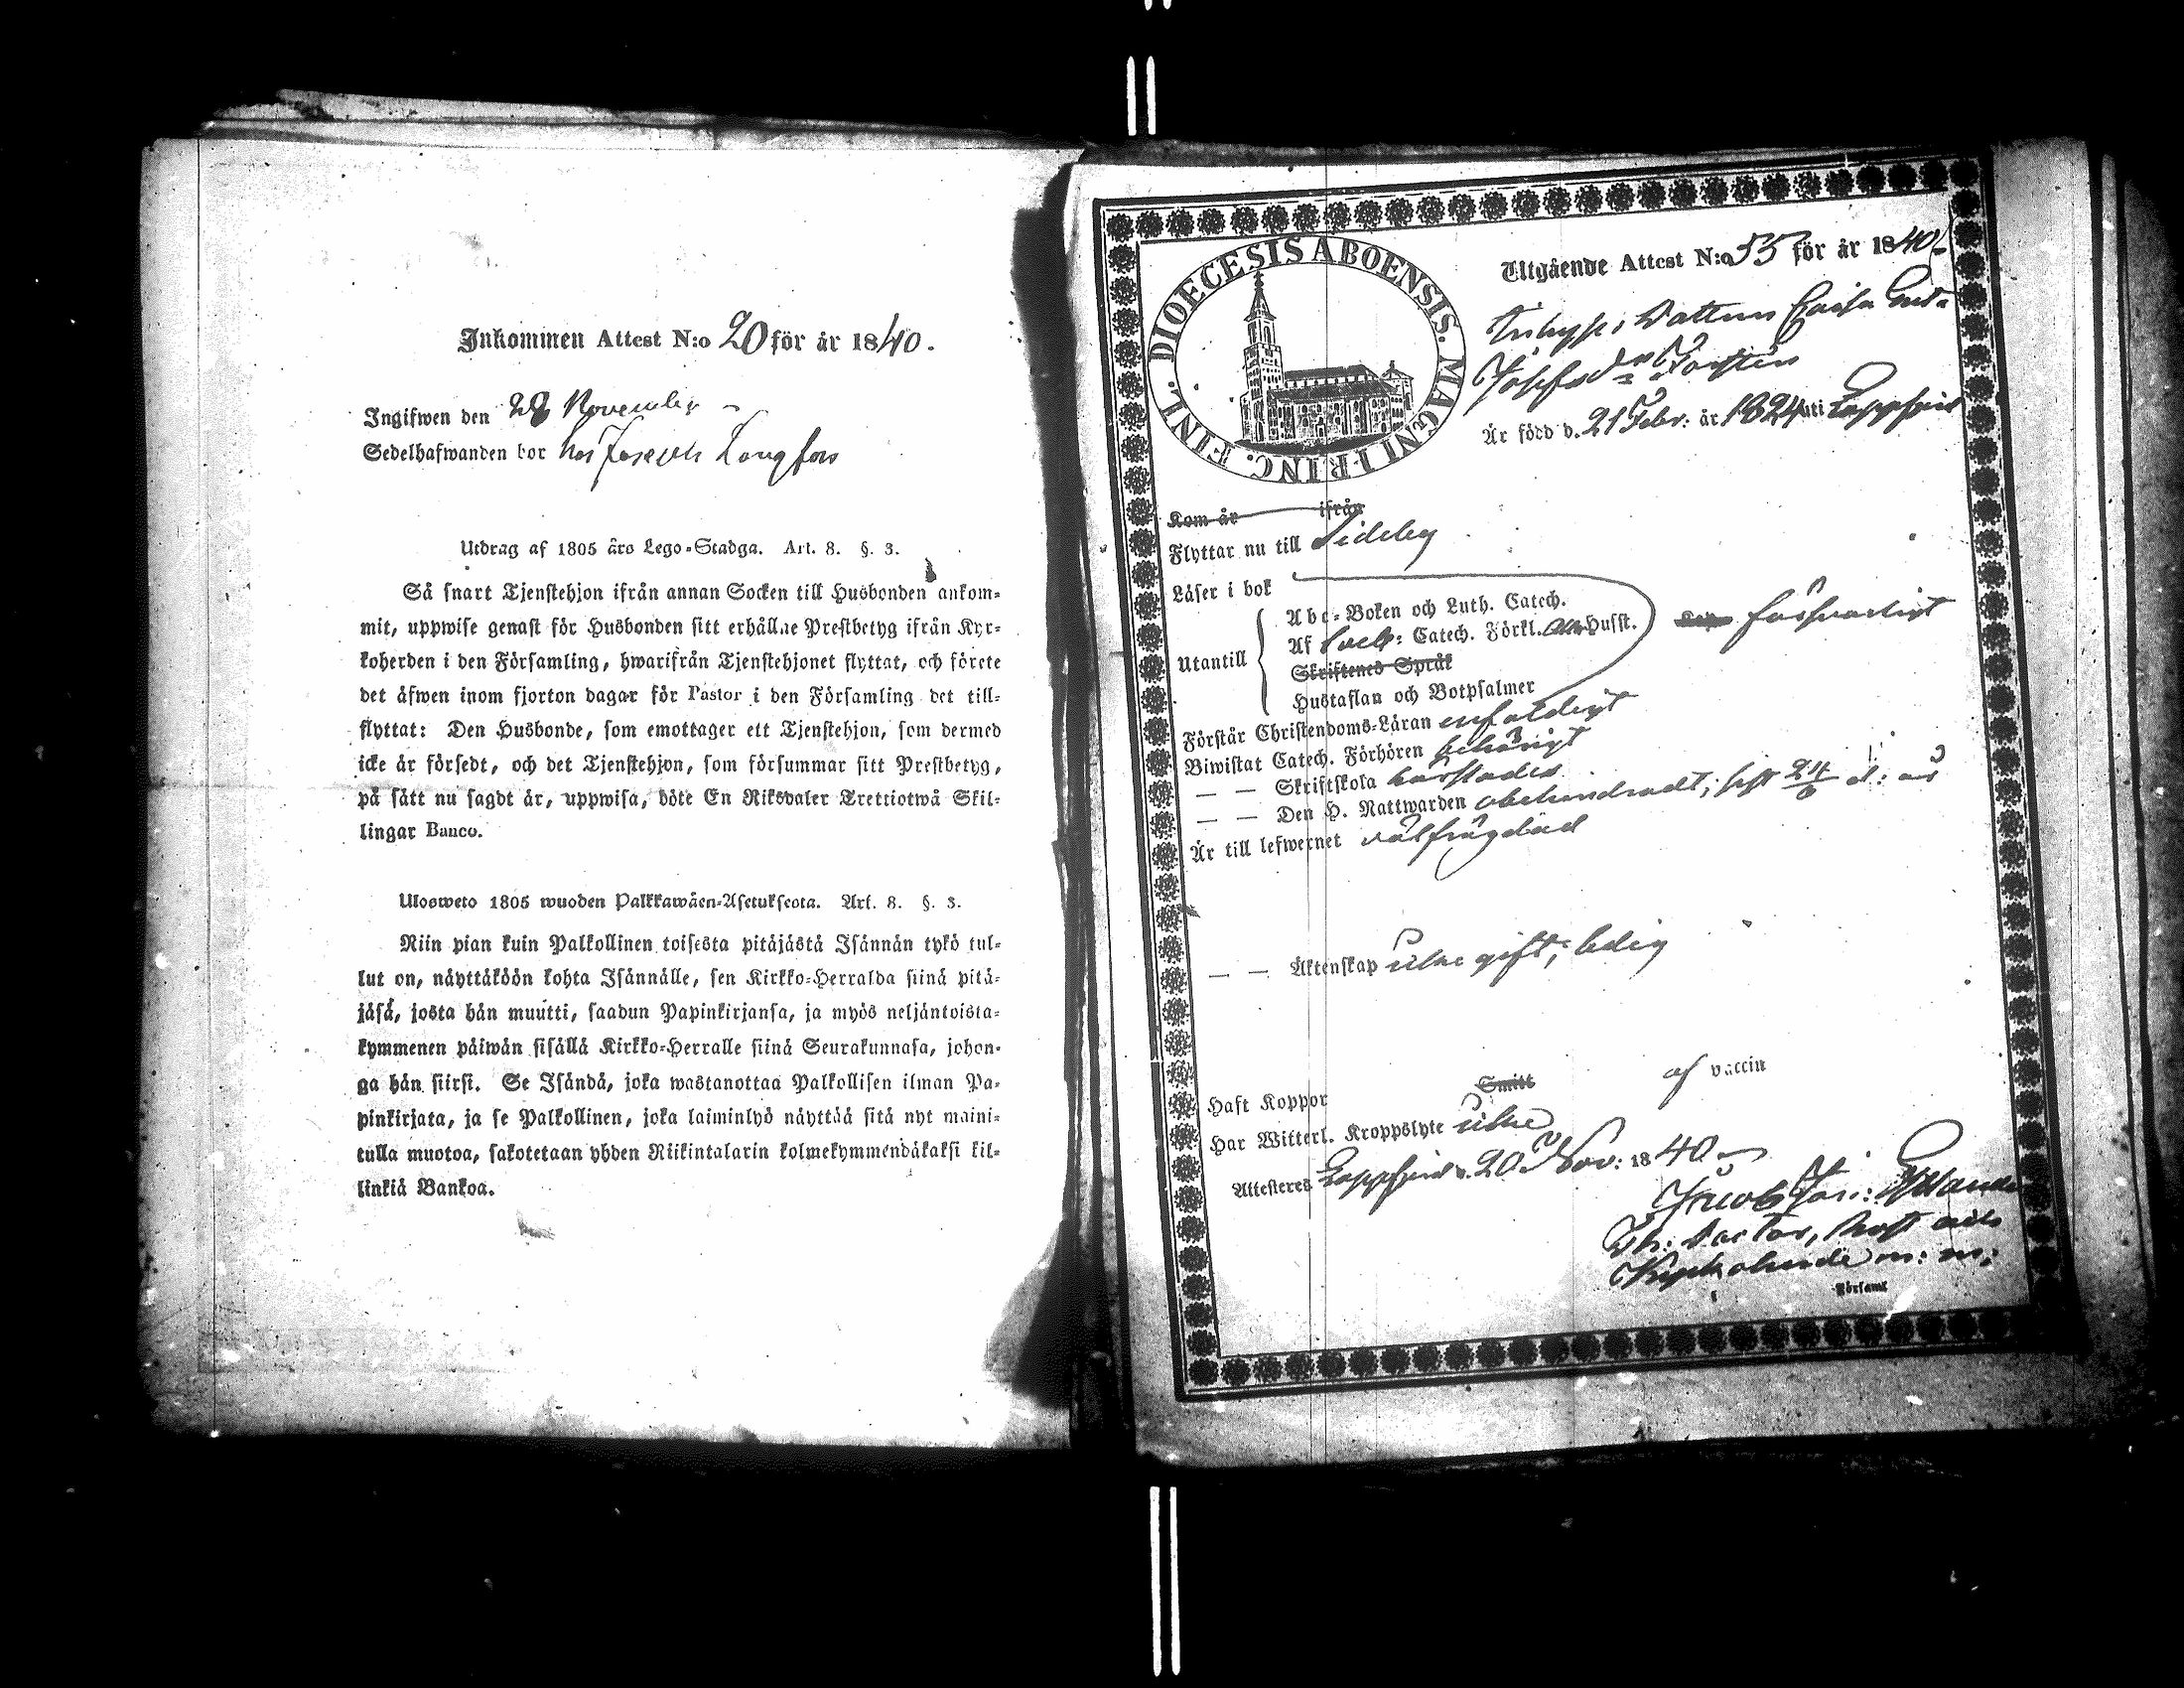 Inkommen Attest N:o 20 för år 1840.
Ingifwen den 28 November
Sedelhafwanden bor hos Joseph Långfors
Utdrag af 1805 års Lego-Stadga. Art. 8. §. 3.
Så snart Tjenstehjon ifrån annan Socken till Husbonden ankom-
mit, uppwise genast för Husbonden sitt erhållne Prestbetyg ifrån Kyr-
koherden i den Församling, hwarifrån Tjenstehjonet flyttat, och förete
det äfwen inom fjorton dagar för Pastor i den Församling det till-
flyttat: Den Husbonde, som emottager ett Tjenstehjon, som dermed
icke är försedt, och det Tjenstehjon, som försummar sitt Prestbetyg,
på sätt nu sagdt är, uppwisa, böte En Riksdaler Trettiotwå Skil-
lingar Banco.
Ulosweto 1805 wuoden Palkkawäen-Asetuksesta. Art. 8. §. 3.
Niin pian kuin Palkollinen toisesta pitäjästä Isännän tykö tul-
lut on, näyttäköön kohta Isännälle, sen Kirkko-Herralda siinä pitä-
jäsä, josta hän muutti, saadun Papinkirjansa, ja myös neljäntoista-
kymmenen päiwän sisällä Kirkko-Herralle siinä Seurakunnasa, johon-
ga hän siirsi. Se Isändä, joka wastanottaa Palkollisen ilman Pa-
pinkirjata, ja se Palkollinen, joka laiminlyö näyttää sitä nyt maini-
tulla muotoa, sakotetaan yhden Riikintalarin kolmekymmendäkaksi kil-
linkiä Bankoa.
DIOECESIS ABOENSIS. MAGNI PRINC. FINL.
Utgående Attest N:o 55 för år 1840
Inhyse, Dottern Caisa
Josephsdr
Är född d. 21 Febr: år 1824 uti Lappfjerd
Kom år ifrån
Flyttar nu till Sideby
Läser i bok
Abc-Boken och Luth. Catech.
Utantill Af Sveb: Catech. Förkl. Husst. försvarligt
Skriftenes Språk
Hustaflan och Botpsalmer
Förstår Christendoms-Läran enfaldigt
Biwistat Catech. Förhören behörigt
— — Skriftskola härstädes
— — Den H. Nattwarden obehindradt; sist d: år
Är till lefwernet välfrägdad
— — Äktenskap icke gift, ledig
Haft Koppor Smitt af vaccin
Har Witterl. Kroppslyte icke
Attesteres Lappfjerd d. 20 Nov: 1840
Jacob
Th: Doctor, Prost och
Kyrkoherde m: m:
i Församl